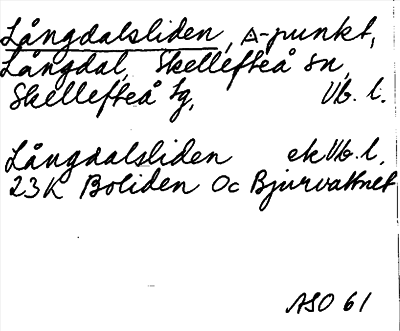 Långdalsliden, △-punkt,
Långdal, Skellefteå sn,
Skellefteå tg, Vb. l.
Långdalsliden ek Vb. l.
23K Boliden Oc Bjurvattnet
ASO 61